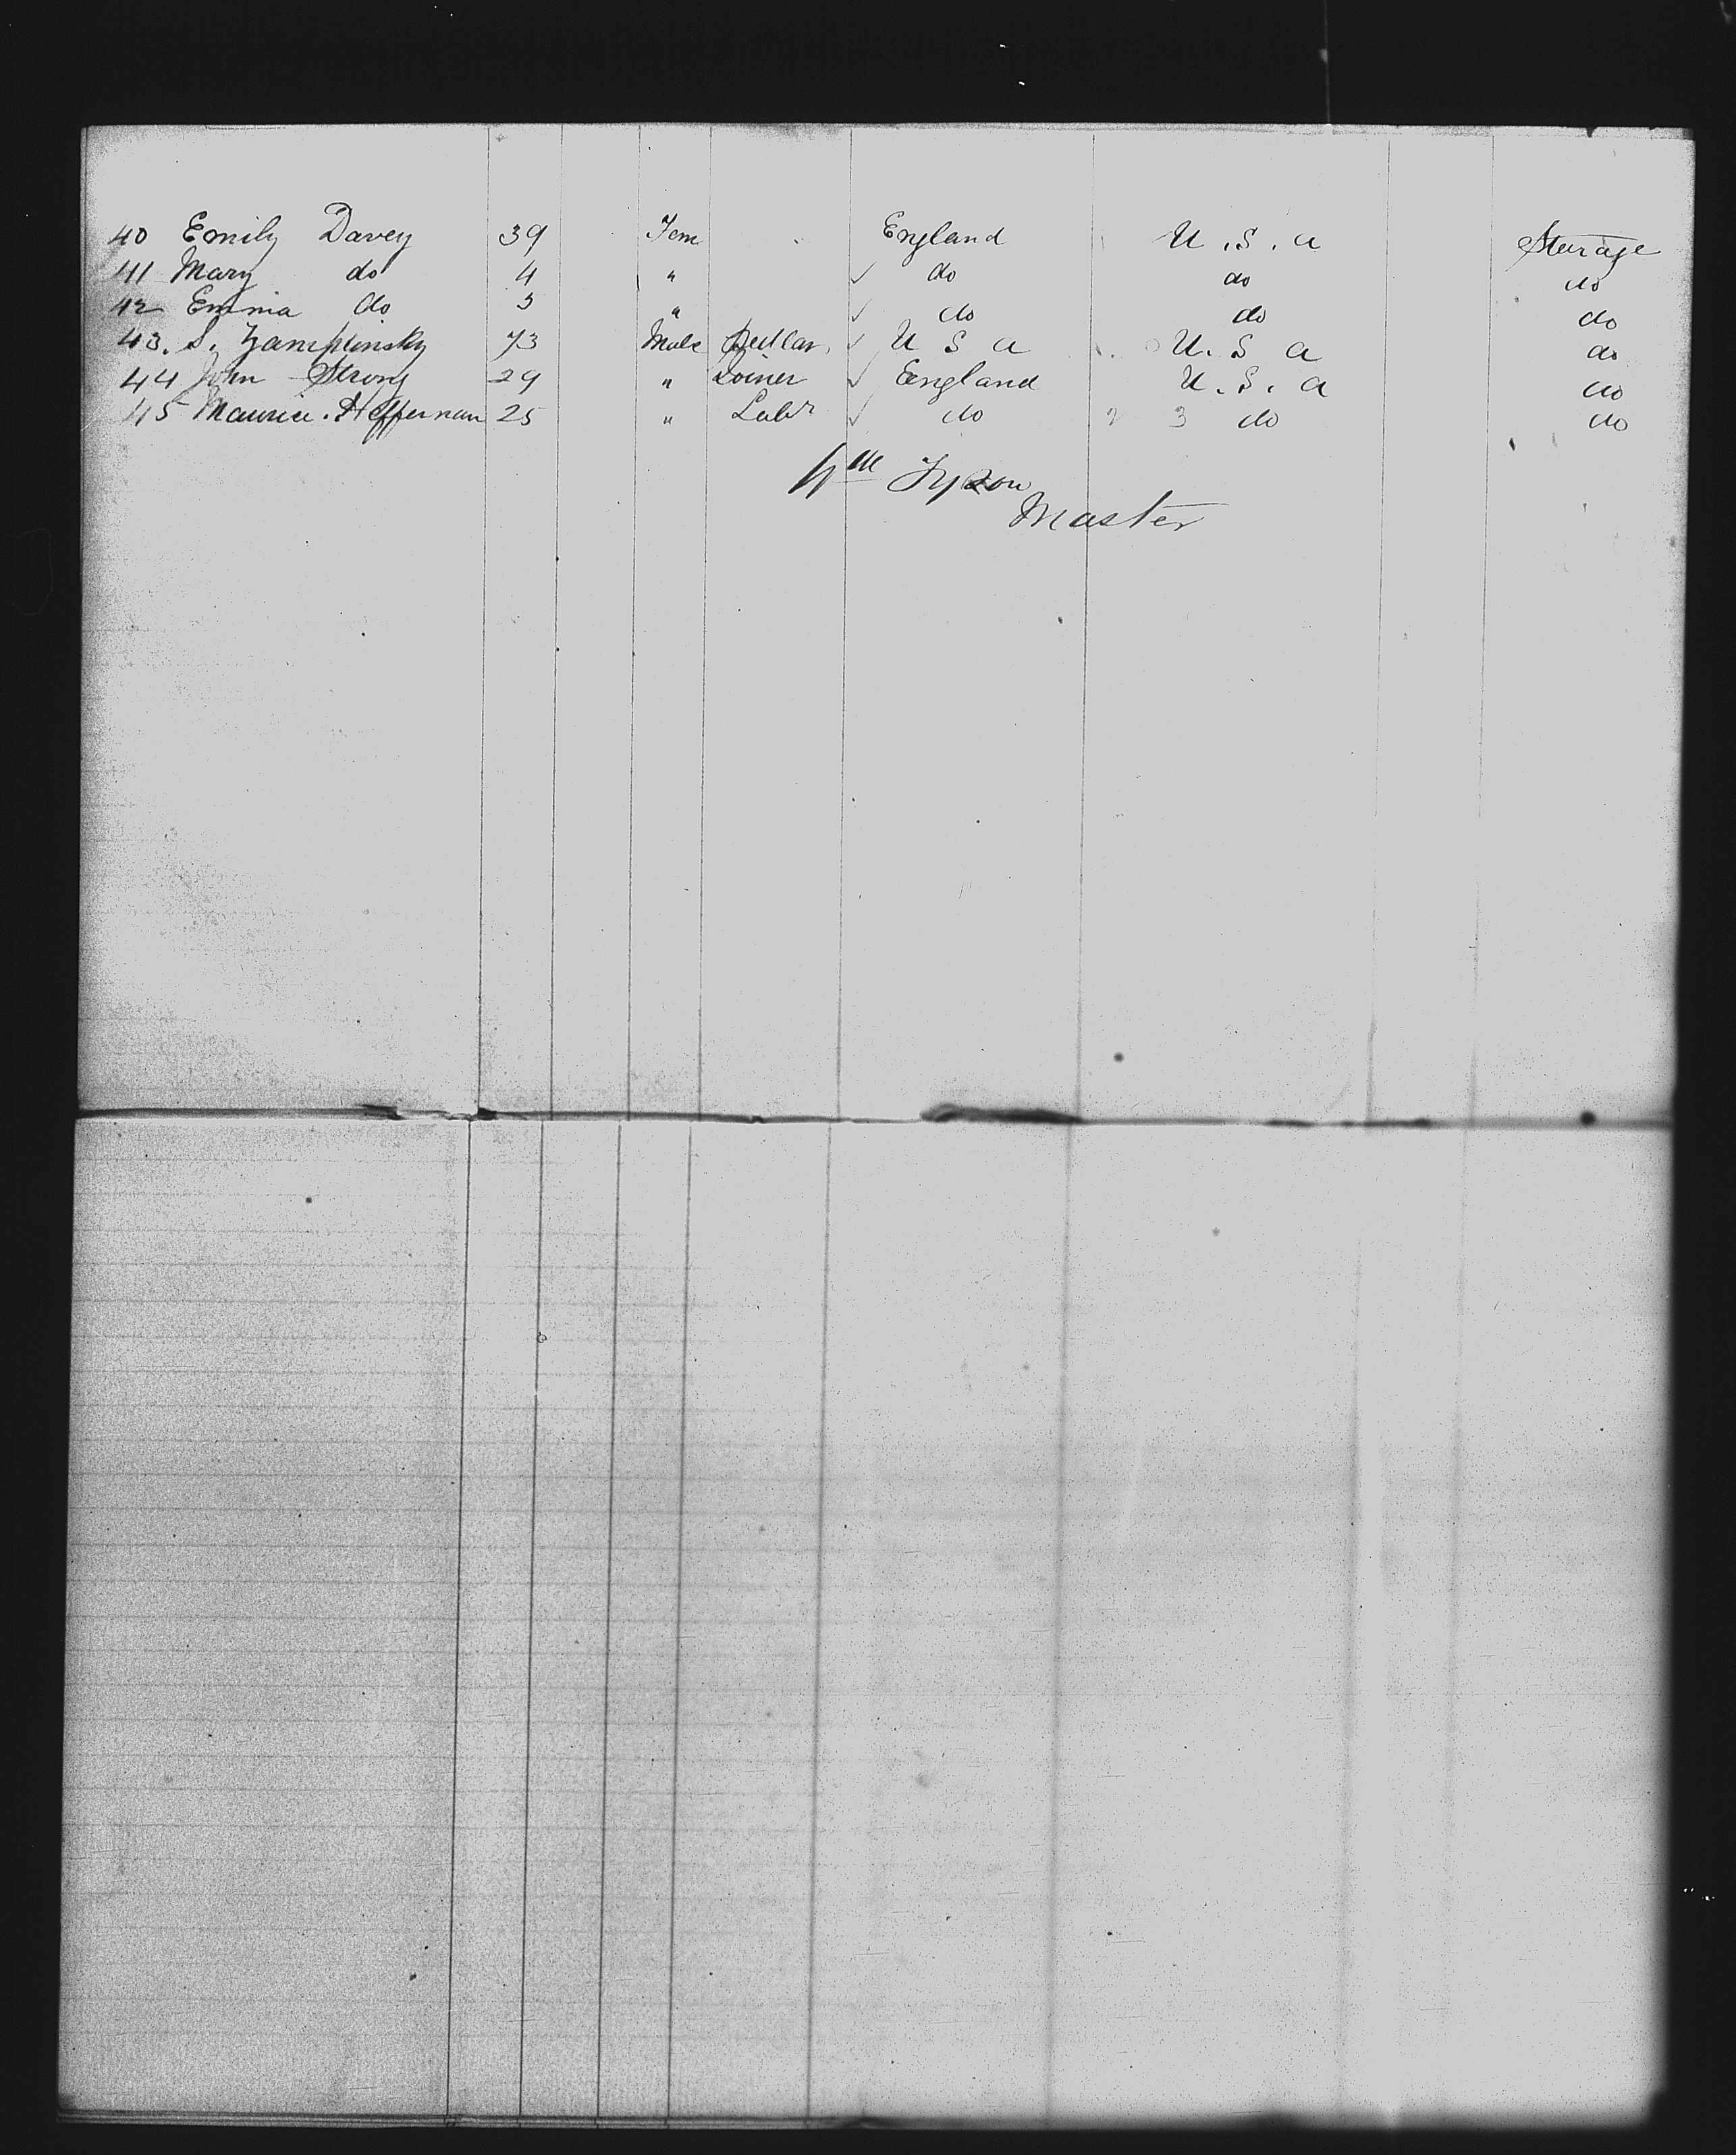 40 Emily Davey 39 Fem England U.S.a Sterage
41 Mary do 4 " ✓ do do do
42 Emma do 3 " ✓ do do do
43. S. Zamplinsky 73 Male Pedlar ✓ U S a U. S a do
44 John Strong 29 " Joiner ✓ England U.S.a do
45 Maurice Heffernan 25 " Labr ✓ do 3 do do
Wm Tyson
Master